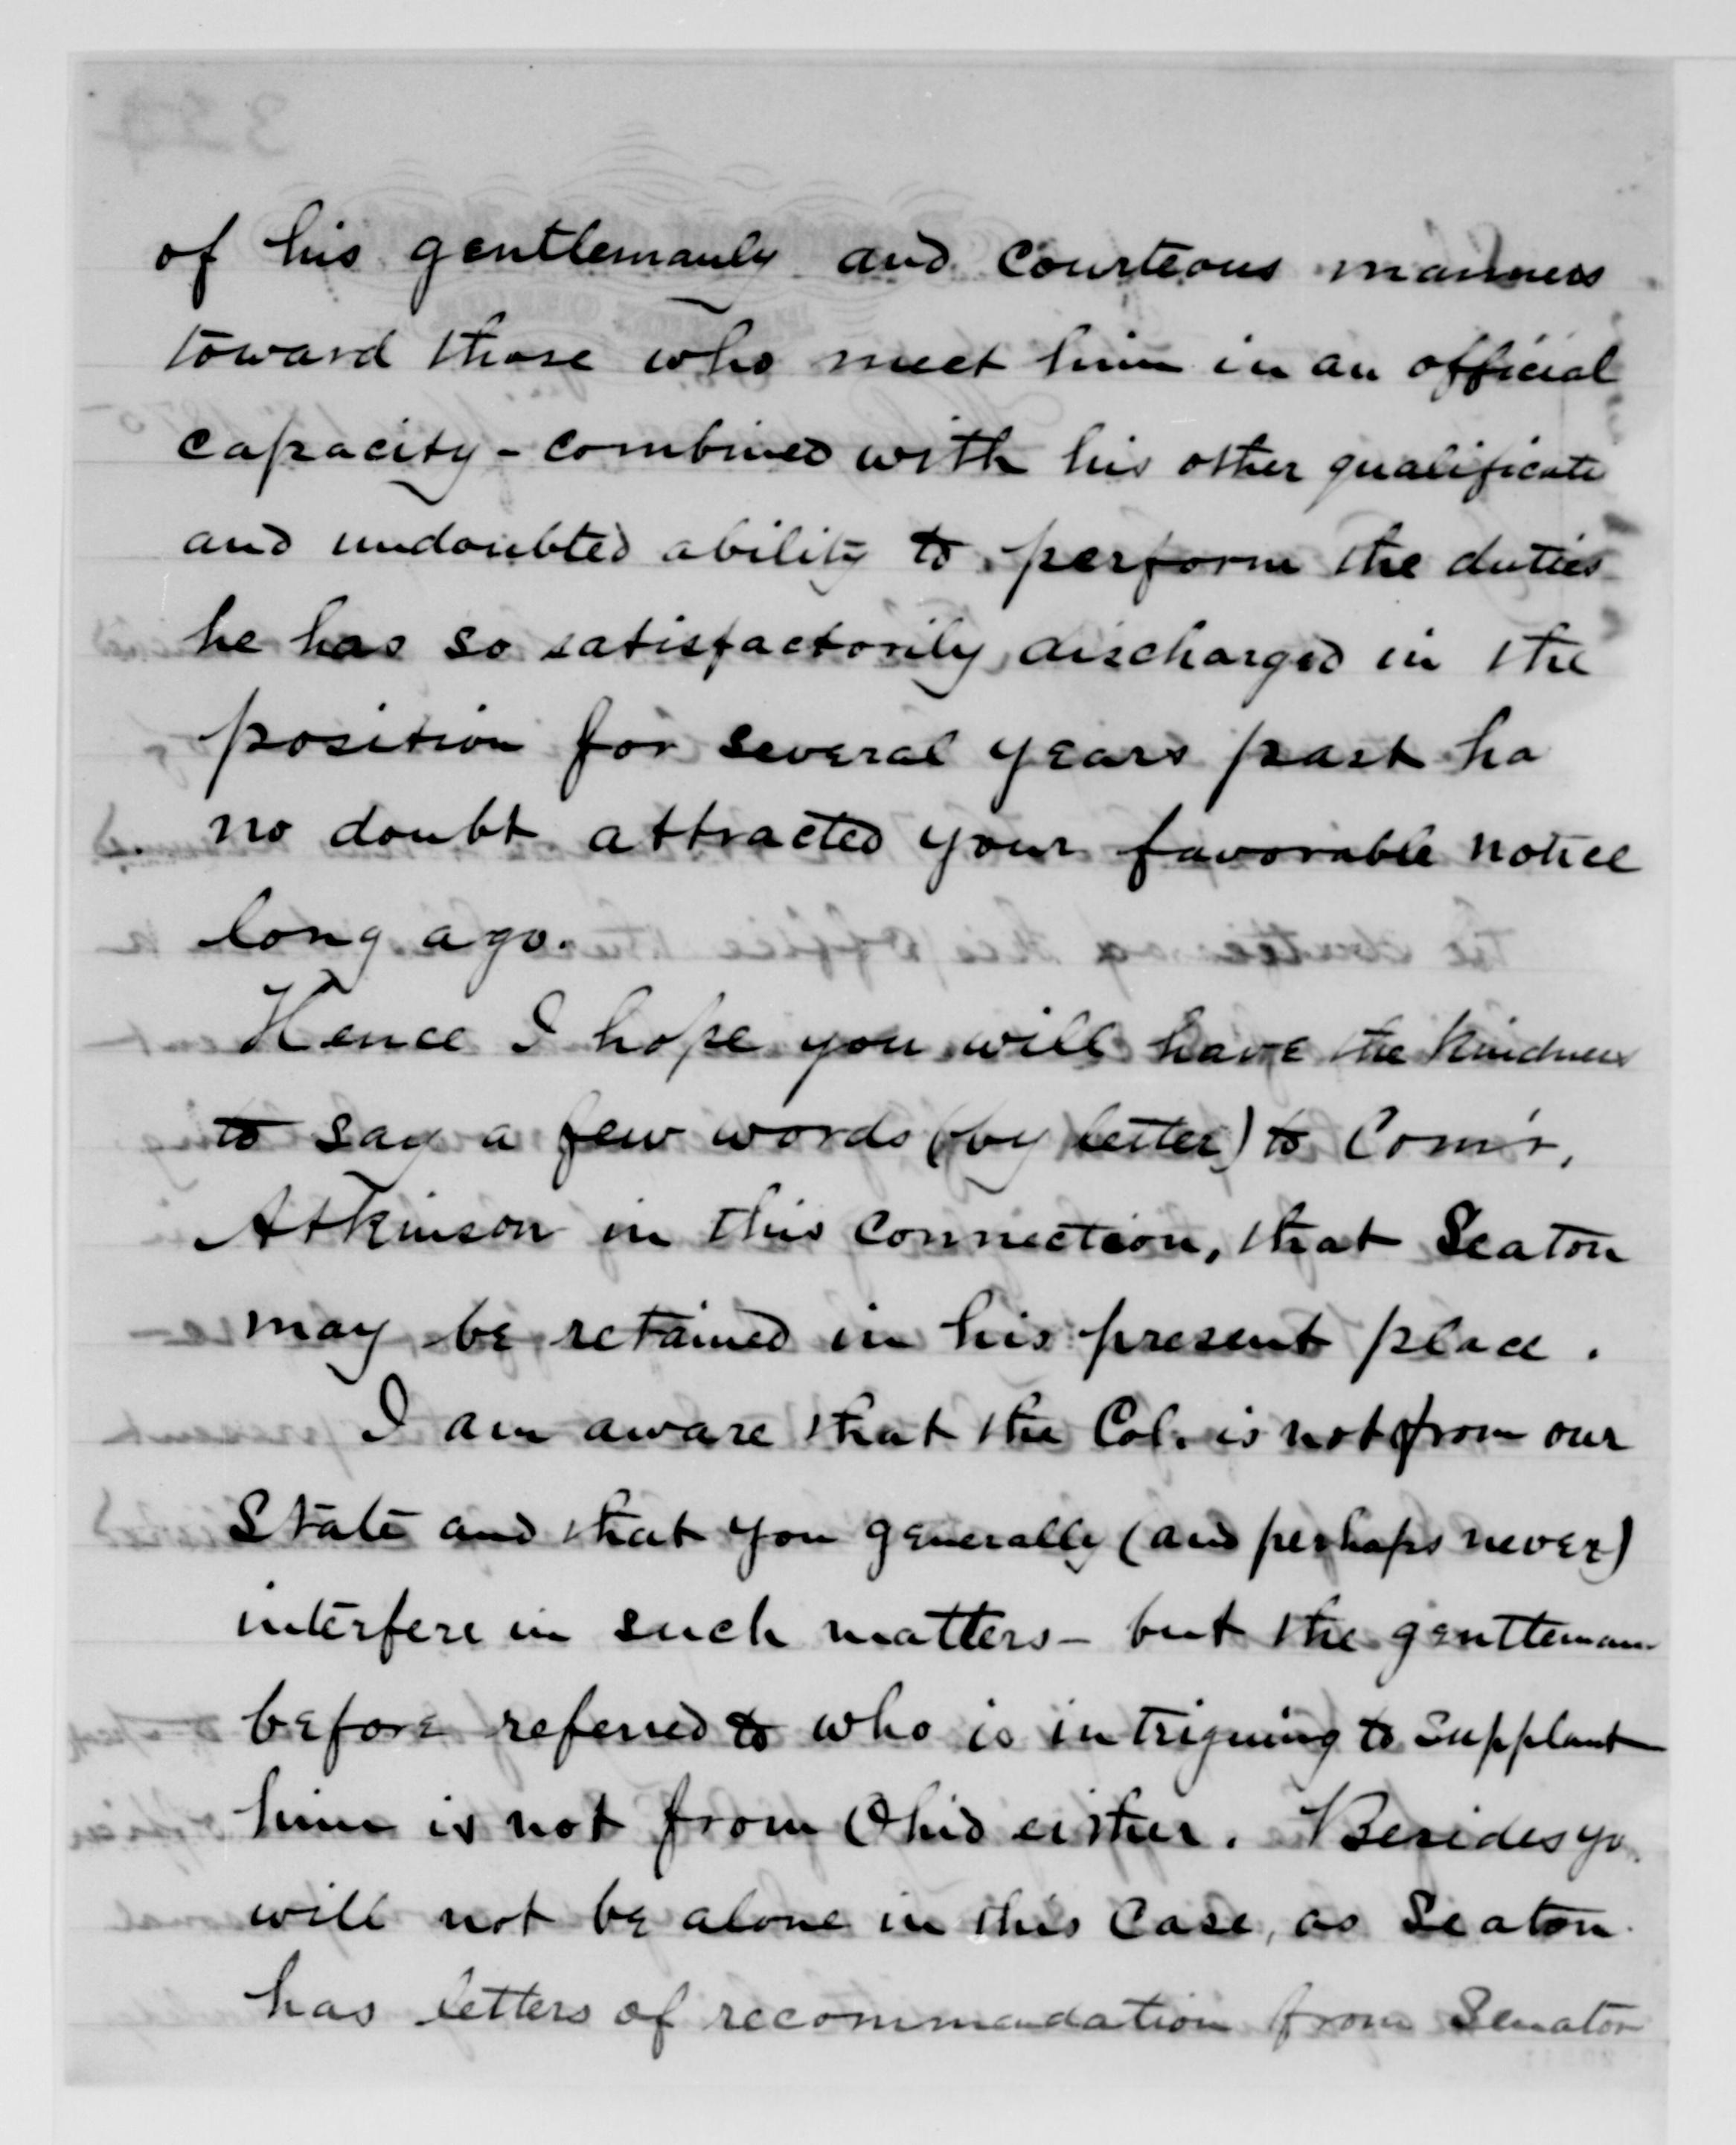 of his gentlemanly and courteous manners
toward those who meet him in an official
capacity - combined with his other qualificati
and undoubted ability to perform the duties
he has so satisfactorily discharged in the
position for several years past ha
no doubt attracted your favorable notice
long ago.
Hence I hope you will have the kindness
to say a few words (by letter) to Com'r,
Atkinson in this connection, that Seaton
may be retained in his present place.
I am aware that the Col. is not from our
State and that you generally (and perhaps never)
interfere in such matters - but the gentleman
before referred to who is intriguing to supplant
him is not from Ohio either. Besides yo
will not be alone in this case, as Seaton
has letters of recommendation from Senator